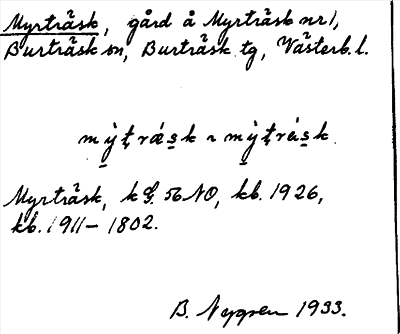 Myrträsk, gård å Myrträsk nr 1,
Burträsk sn, Burträsk tg, Västerb. l.
Myrträsk, k G. 56 NO, kb. 1926,
kb. 1911 – 1802.
B. 1933.